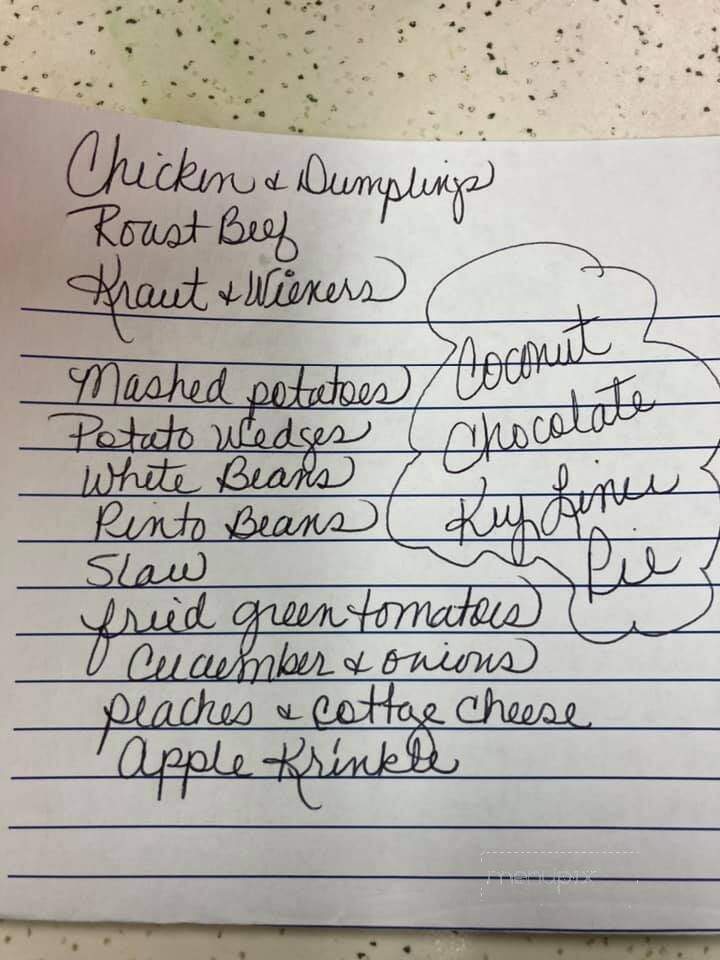 Chicken & Dumplings
Roast Beef
Kraut & Wieners
Mashed potatoes
Potato Wedges
White Beans
Pinto Beans
Slaw
fried green tomatoes
Cucumber & onions
peaches & cottage cheese
Apple Krinkle
Coconut
Chocolate
Key Lime
Pie
menupix